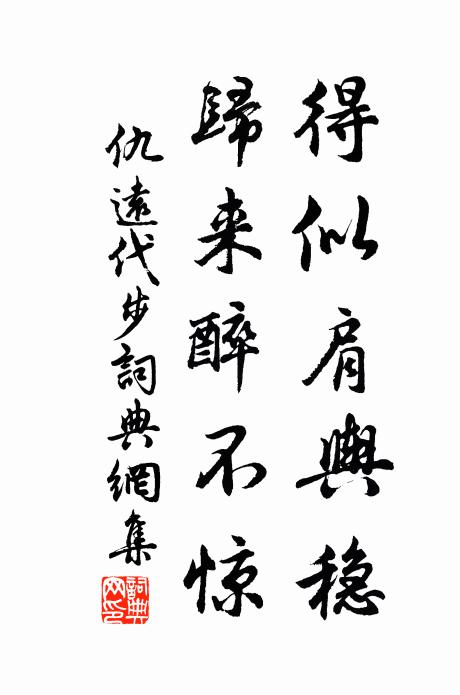 得似肩輿穏
歸来醉不惊
仇遠代步詞典網集
詞典網印